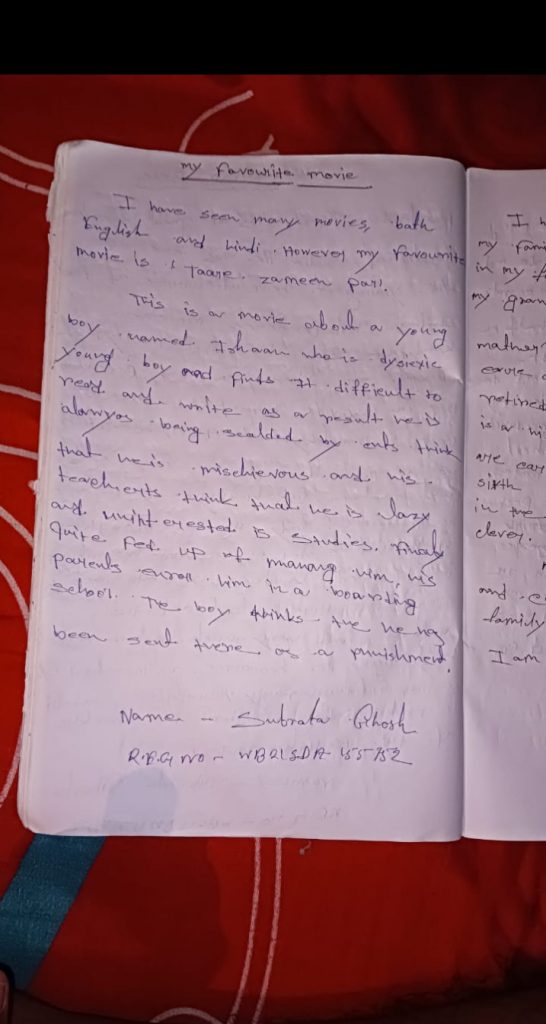 my favourite movie
I have seen many movies, bath
English and hindi. However my favourite
movie is ' Taare. zameen par'.
This is a movie about a young
boy named Ishaan who is dyslexic
young boy and finds it difficult to
read and write as a result he is
always being scalded by
think
that he is mischievous and his
teachers think that he is lazy
and uninterested is studies. finaly
quite fed up of manang him, his
parents enroll him in a boarding
school. The boy thinks the he has
been sent there as a punishment.
Name - Subrata Ghosh
R.E.G no -
I h
my fami
in my f
my gran
mather
retired
is a hi
are ear
sixth
in the
clever.
and
family
I am